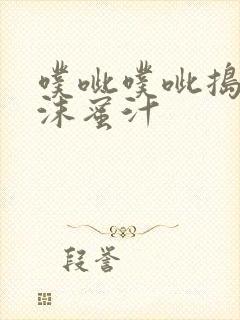 噗呲噗呲捣
沫蜜汁
段誉